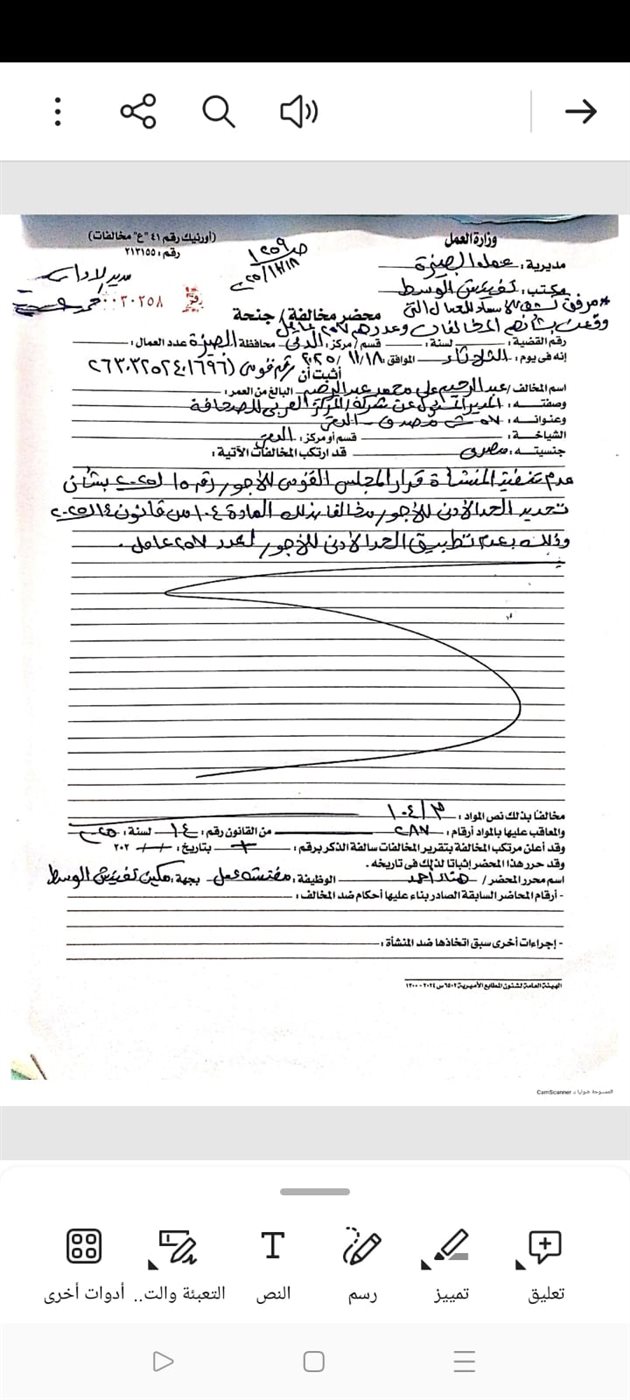 وزارة العمل
(أورنيك رقم ٤١ "ع" مخالفات)
رقم : ٢١٣١٥٥
مديرية : عمل الجيزة
١٢٥٩
٢٠٢٥/١١/١٨
مدير الإدارة
مكتب : تفتيش الوسط
٠٢٠٢٥٨
مرفق كشف بالأسماء للعمال التى
وقعت بشأنهم المخالفات وعددهم ٢٥٧ عامل
محضر مخالفة / جنحة
رقم القضية : لسنة : قسم / مركز : الدقى محافظة الجيزة عدد العمال :
إنه فى يوم : الثلاثاء الموافق ١١/١٨/ ٢٠٢٥ رقم قومى (
أثبت أن
اسم المخالف / عبدالرحيم على محمد البالغ من العمر :
وصفته : المدير المسئول عن شركة / المركز العربى للصحافة
وعنوانه : ش مصدق - الدقى
الشياخة : قسم أو مركز : الدقى
جنسيته : مصرى قد ارتكب المخالفات الآتية :
عدم تنفيذ المنشأة قرار المجلس القومى للأجور رقم ١٥ لـ ٢٠٢٥ بشأن
تحديد الحد الأدنى للأجور مخالفا بذلك المادة ١٠٤ من قانون ١٤ لـ ٢٠٢٥
وذلك بعدم تطبيق الحد الأدنى للأجور لعدد ٢٥٧ عامل .
مخالفا بذلك نص المواد : ١٠٤/٣
والمعاقب عليها بالمواد أرقام : ٢٨٧ من القانون رقم : ١٤ لسنة : ٢٠٢٥
وقد أعلن مرتكب المخالفة بتقرير المخالفات سالفة الذكر برقم : بتاريخ : / / ٢٠٢
وقد حرر هذا المحضر إثباتا لذلك فى تاريخه .
اسم محرر المحضر / هناء احمد الوظيفة : مفتشة عمل بجهة : مكتب تفتيش الوسط
- أرقام المحاضر السابقة الصادر بناء عليها أحكام ضد المخالف :
- إجراءات أخرى سبق اتخاذها ضد المنشأة :
الهيئة العامة لشئون المطابع الأميرية ٦٥٠٢ س ٢٠٢٤ - ١٢٠٠
الممسوحة ضوئيا بـ CamScanner
تعليق
تمييز
رسم
النص
التعبئة والت..
أدوات أخرى